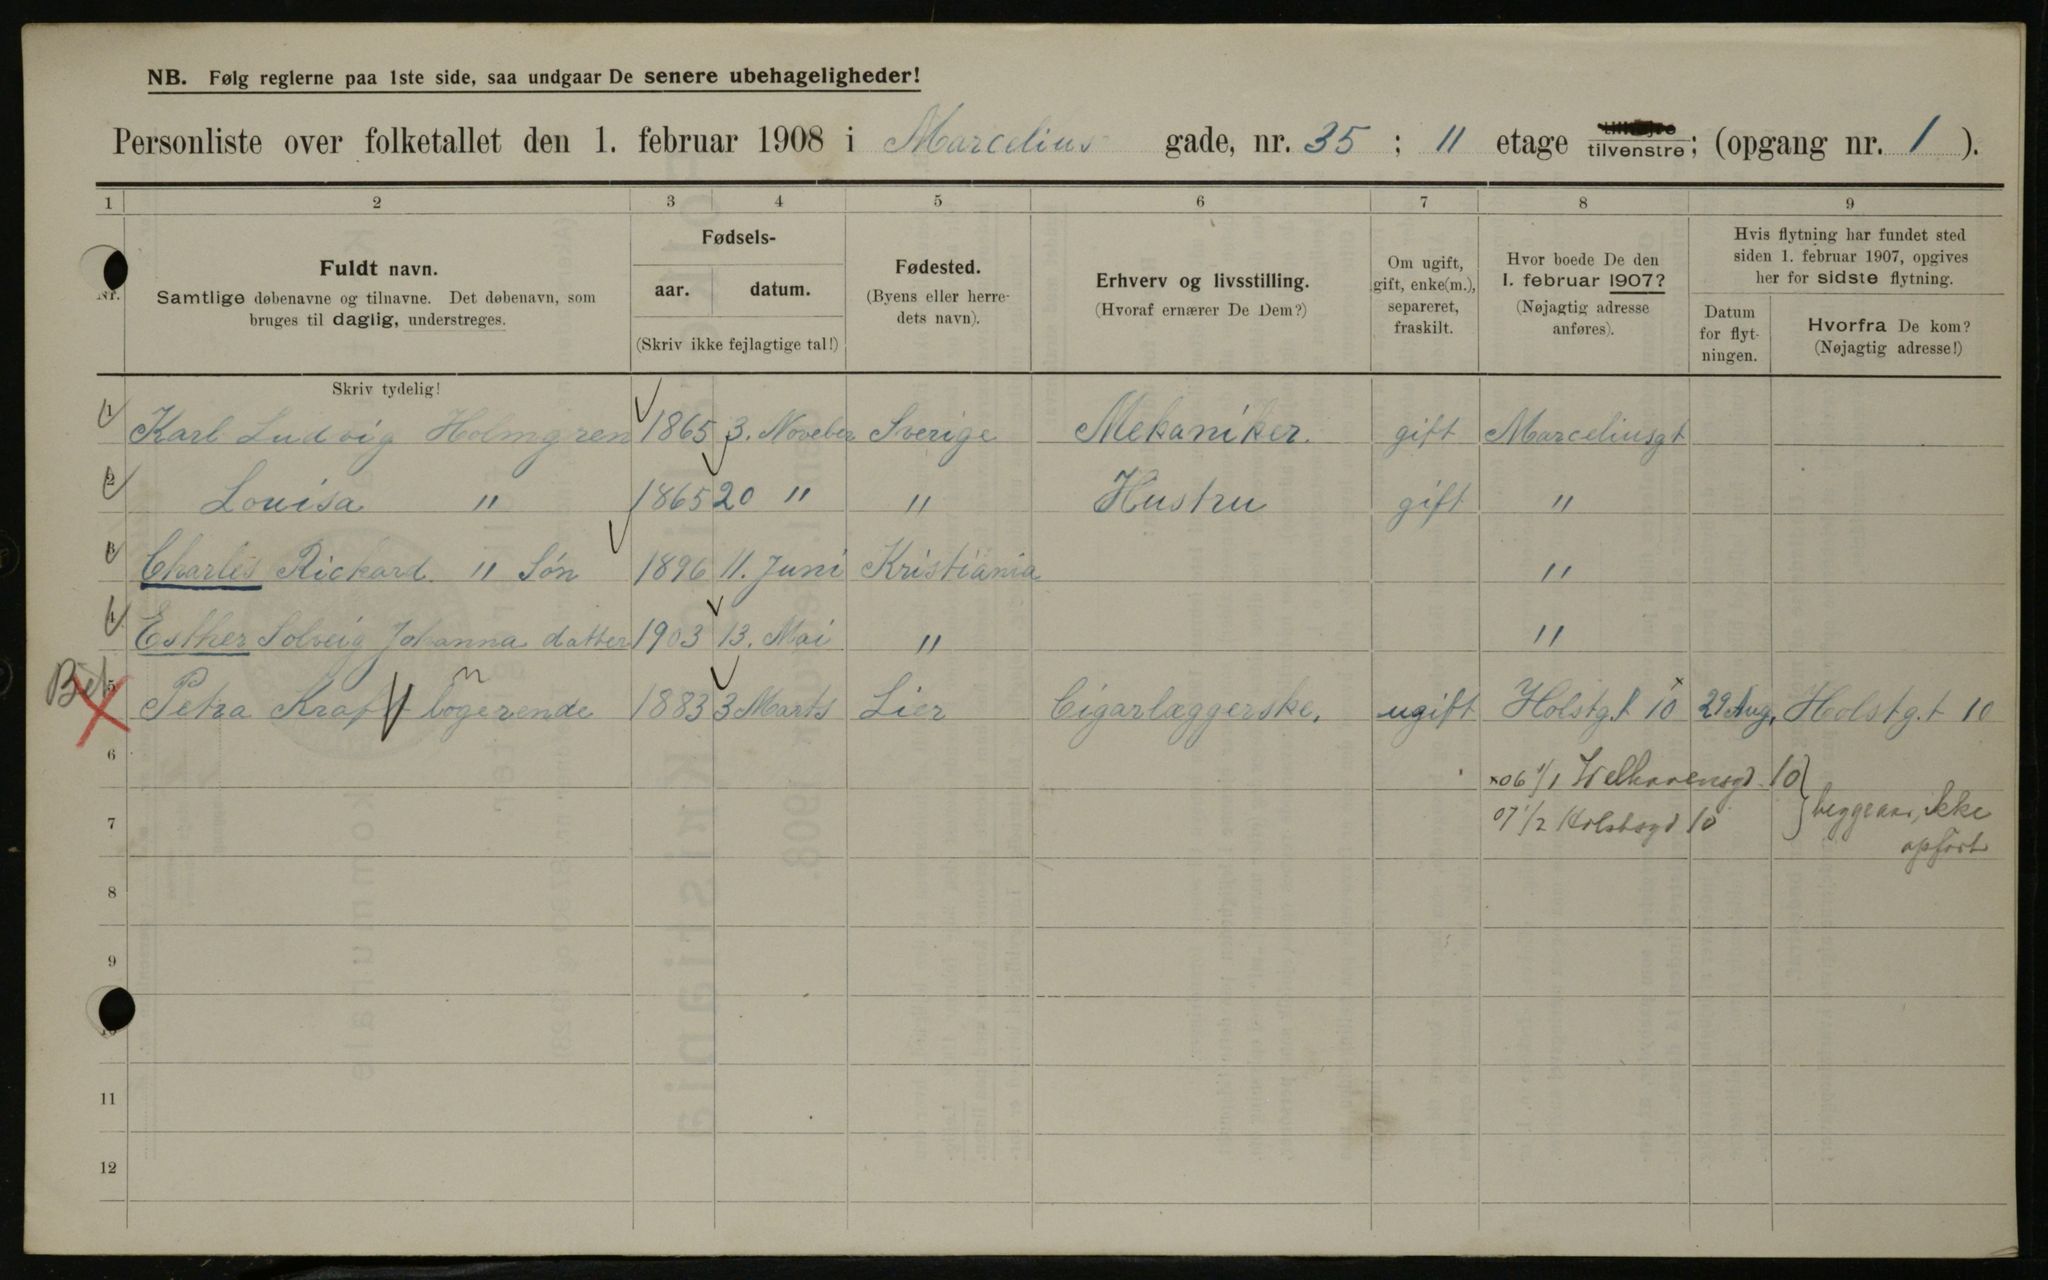 NB. Følg reglerne paa 1ste side, saa undgaar De senere ubehageligheder!
Personliste over folketallet den 1. februar 1908 i Marcelius gade, nr. 35 ; 11 etage tilvenstre; (opgang nr. 1 ).
1 2 3 4 5 6 7 8 9
Nr.
Fuldt navn.
Samtlige døbenavne og tilnavne. Det døbenavn, som
bruges til daglig, understreges.
Skriv tydelig!
Fødsels-
aar. datum.
(Skriv ikke fejlagtige tal!)
Fødested.
(Byens eller herre-
dets navn).
Erhverv og livsstilling.
(Hvoraf ernærer De Dem?)
Om ugift,
gift, enke(m.),
separeret,
fraskilt.
Hvor boede De den
1. februar 1907?
(Nøjagtig adresse
anføres).
Hvis flytning har fundet sted
siden 1. februar 1907, opgives
her for sidste flytning.
Datum
for flyt-
ningen.
Hvorfra De kom?
(Nøjagtig adresse!)
1 Karl Ludvig Holmgren 1865 3. Noveber Sverige Mekaniker. gift Marceliusgt
2 Louisa " 1865 20 " " Hustru gift "
3 Charles Rickard. " Søn 1896 11. Juni Kristiania "
4 Esther Solveig Johanna datter 1903 13. Mai " "
Bet 5 Petra Kraft logerende 1883 3 Marts Lier Cigarlæggerske, ugift Holstg.t 10 29 Aug, Holstg.t 10
6 ×06 1/1 Welhavensgd 10
7 07 1/2 Holstsgd 10 } beggeaar, ikke
opført
8
9
10
11
12